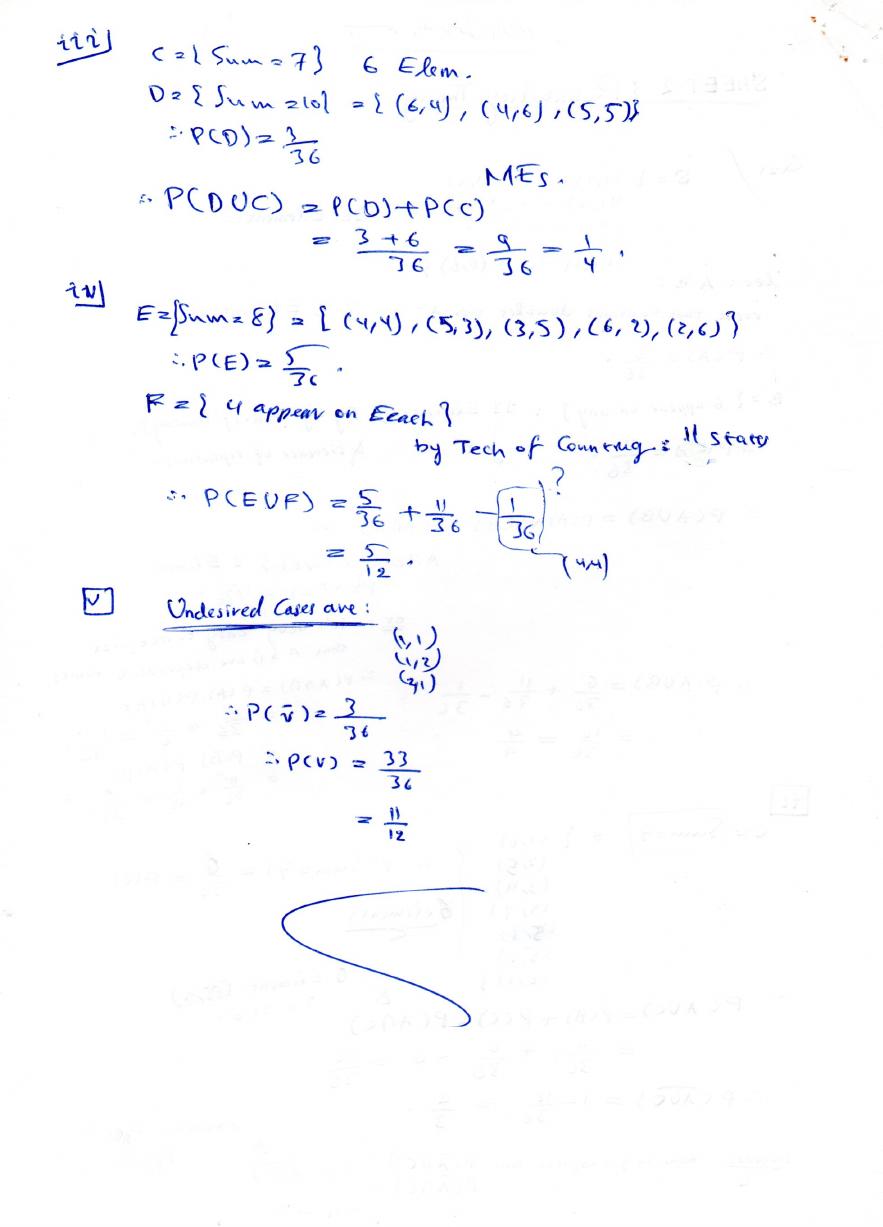 iii)
C = { Sum = 7 } 6 Elem.
D = { Sum = 10 } = { (6,4), (4,6), (5,5) }
∴ P(D) = 3/36
MEs.
∴ P(D ∪ C) = P(D) + P(C)
= 3 + 6 / 36 = 9/36 = 1/4 .
iv)
E = {Sum = 8} = { (4,4), (5,3), (3,5), (6,2), (2,6) }
∴ P(E) = 5/36 .
F = { 4 appear on Eeach }
by Tech of Counting : 11 states
∴ P(E ∪ F) = 5/36 + 11/36 - 1/36 ?
= 5/12 . (4,4)
v
Undesired Cases are :
(1,1)
(1,2)
(2,1)
∴ P(v̄) = 3/36
∴ P(v) = 33/36
= 11/12